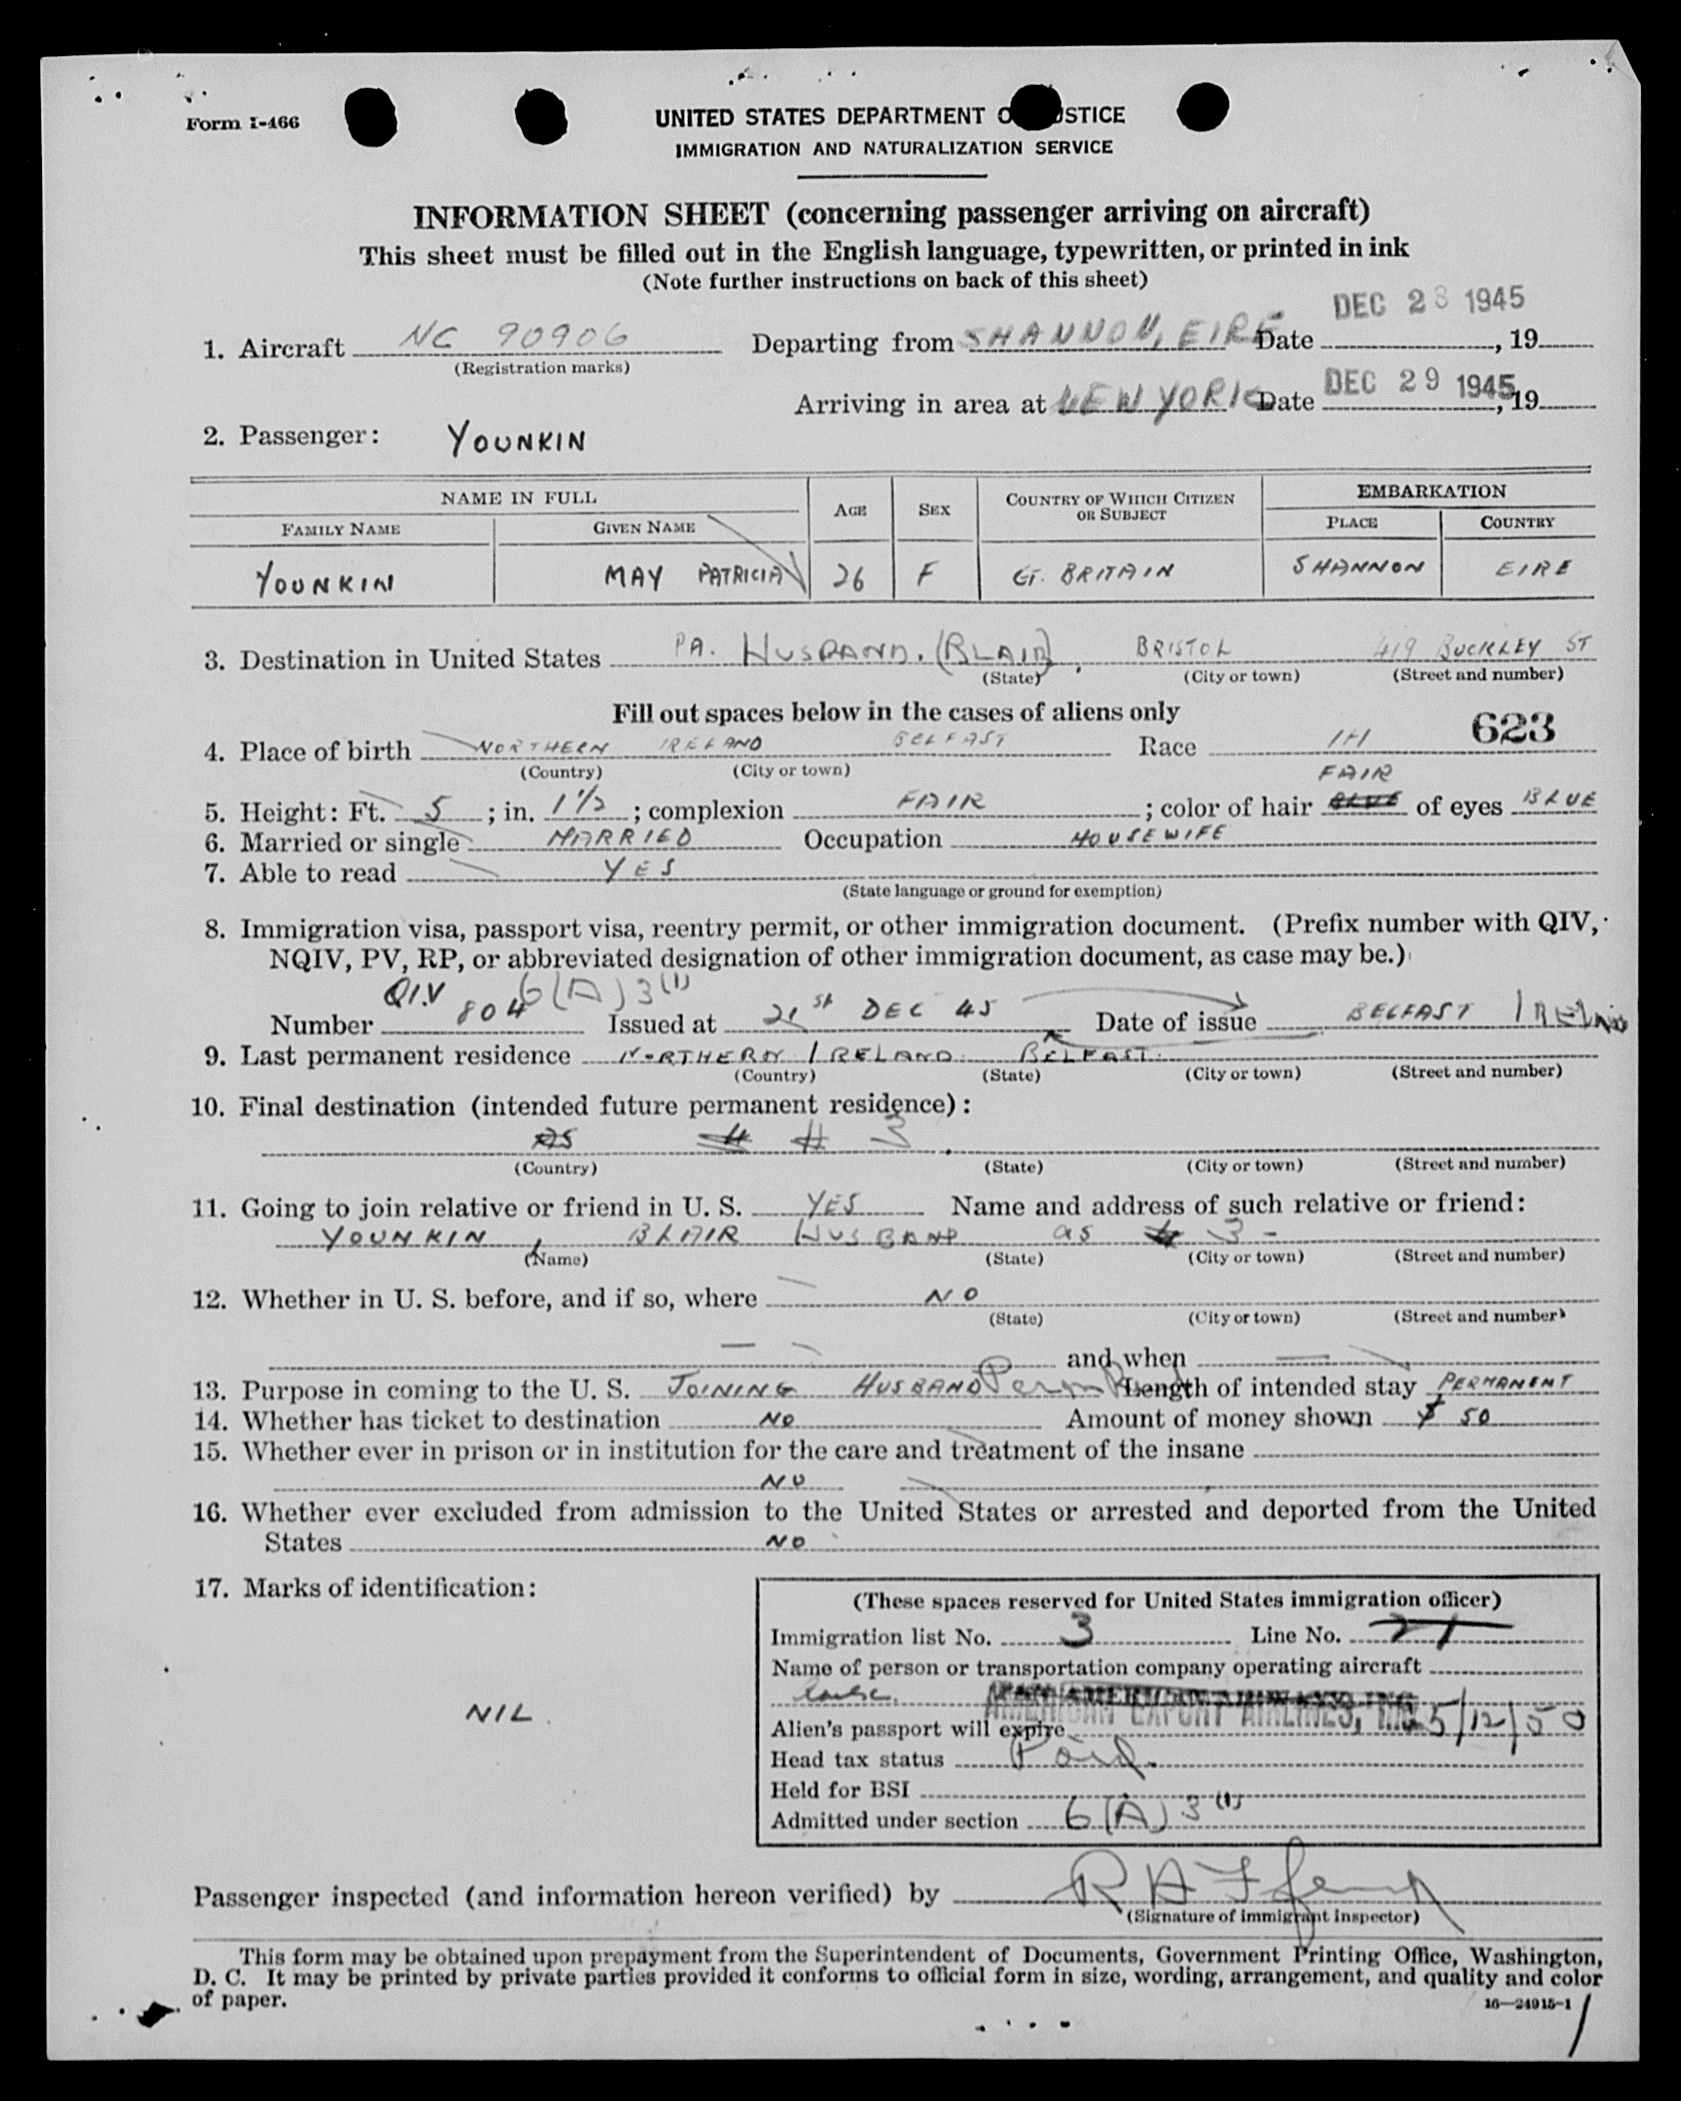 Form I-466
UNITED STATES DEPARTMENT O STICE
IMMIGRATION AND NATURALIZATION SERVICE
INFORMATION SHEET (concerning passenger arriving on aircraft)
This sheet must be filled out in the English language, typewritten, or printed in ink
(Note further instructions on back of this sheet)
DEC 28 1945
1. Aircraft NC 90906 Departing from SHANNON, EIRE Date , 19
(Registration marks)
DEC 29 1945
Arriving in area at NEW YORK Date , 19
2. Passenger: YOUNKIN
NAME IN FULL AGE SEX COUNTRY OF WHICH CITIZEN OR SUBJECT EMBARKATION
FAMILY NAME GIVEN NAME PLACE COUNTRY
YOUNKIN MAY PATRICIA 26 F GT. BRITAIN SHANNON EIRE
3. Destination in United States PA. HUSBAND. (BLAIR), BRISTOL 419 BUCKLEY ST
(State) (City or town) (Street and number)
Fill out spaces below in the cases of aliens only
623
4. Place of birth NORTHERN IRELAND BELFAST Race
(Country) (City or town)
FAIR
5. Height: Ft. 5 ; in. 1 1/2 ; complexion FAIR ; color of hair BLUE of eyes BLUE
6. Married or single MARRIED Occupation HOUSEWIFE
7. Able to read YES
(State language or ground for exemption)
8. Immigration visa, passport visa, reentry permit, or other immigration document. (Prefix number with QIV,
NQIV, PV, RP, or abbreviated designation of other immigration document, as case may be.)
QIV 6(A)3(1)
Number 804 Issued at 21st DEC 45 Date of issue BELFAST IRELAND
9. Last permanent residence NORTHERN IRELAND. BELFAST.
(Country) (State) (City or town) (Street and number)
10. Final destination (intended future permanent residence):
as 4 # 3
(Country) (State) (City or town) (Street and number)
11. Going to join relative or friend in U. S. YES Name and address of such relative or friend:
YOUNKIN, BLAIR HUSBAND as # 3 -
(Name) (State) (City or town) (Street and number)
12. Whether in U. S. before, and if so, where NO
(State) (City or town) (Street and number)
— and when —
13. Purpose in coming to the U. S. JOINING HUSBAND Perm Length of intended stay PERMANENT
14. Whether has ticket to destination NO Amount of money shown $ 50
15. Whether ever in prison or in institution for the care and treatment of the insane
NO
16. Whether ever excluded from admission to the United States or arrested and deported from the United
States NO
17. Marks of identification:
NIL.
(These spaces reserved for United States immigration officer)
Immigration list No. 3 Line No. 21
Name of person or transportation company operating aircraft
AMERICAN EXPORT AIRLINES, INC.
Alien's passport will expire 5/12/50
Head tax status Paid.
Held for BSI
Admitted under section 6(A)3(1)
Passenger inspected (and information hereon verified) by
(Signature of immigrant inspector)
This form may be obtained upon prepayment from the Superintendent of Documents, Government Printing Office, Washington,
D. C. It may be printed by private parties provided it conforms to official form in size, wording, arrangement, and quality and color
of paper.
16—24915-1